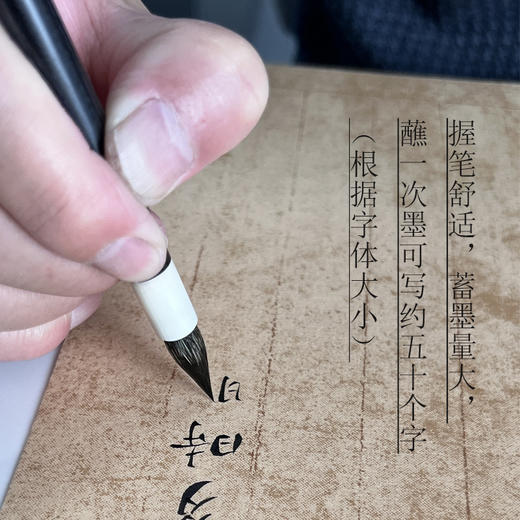 握笔舒适，蓄墨量大，
蘸一次墨可写约五十个字
（根据字体大小）